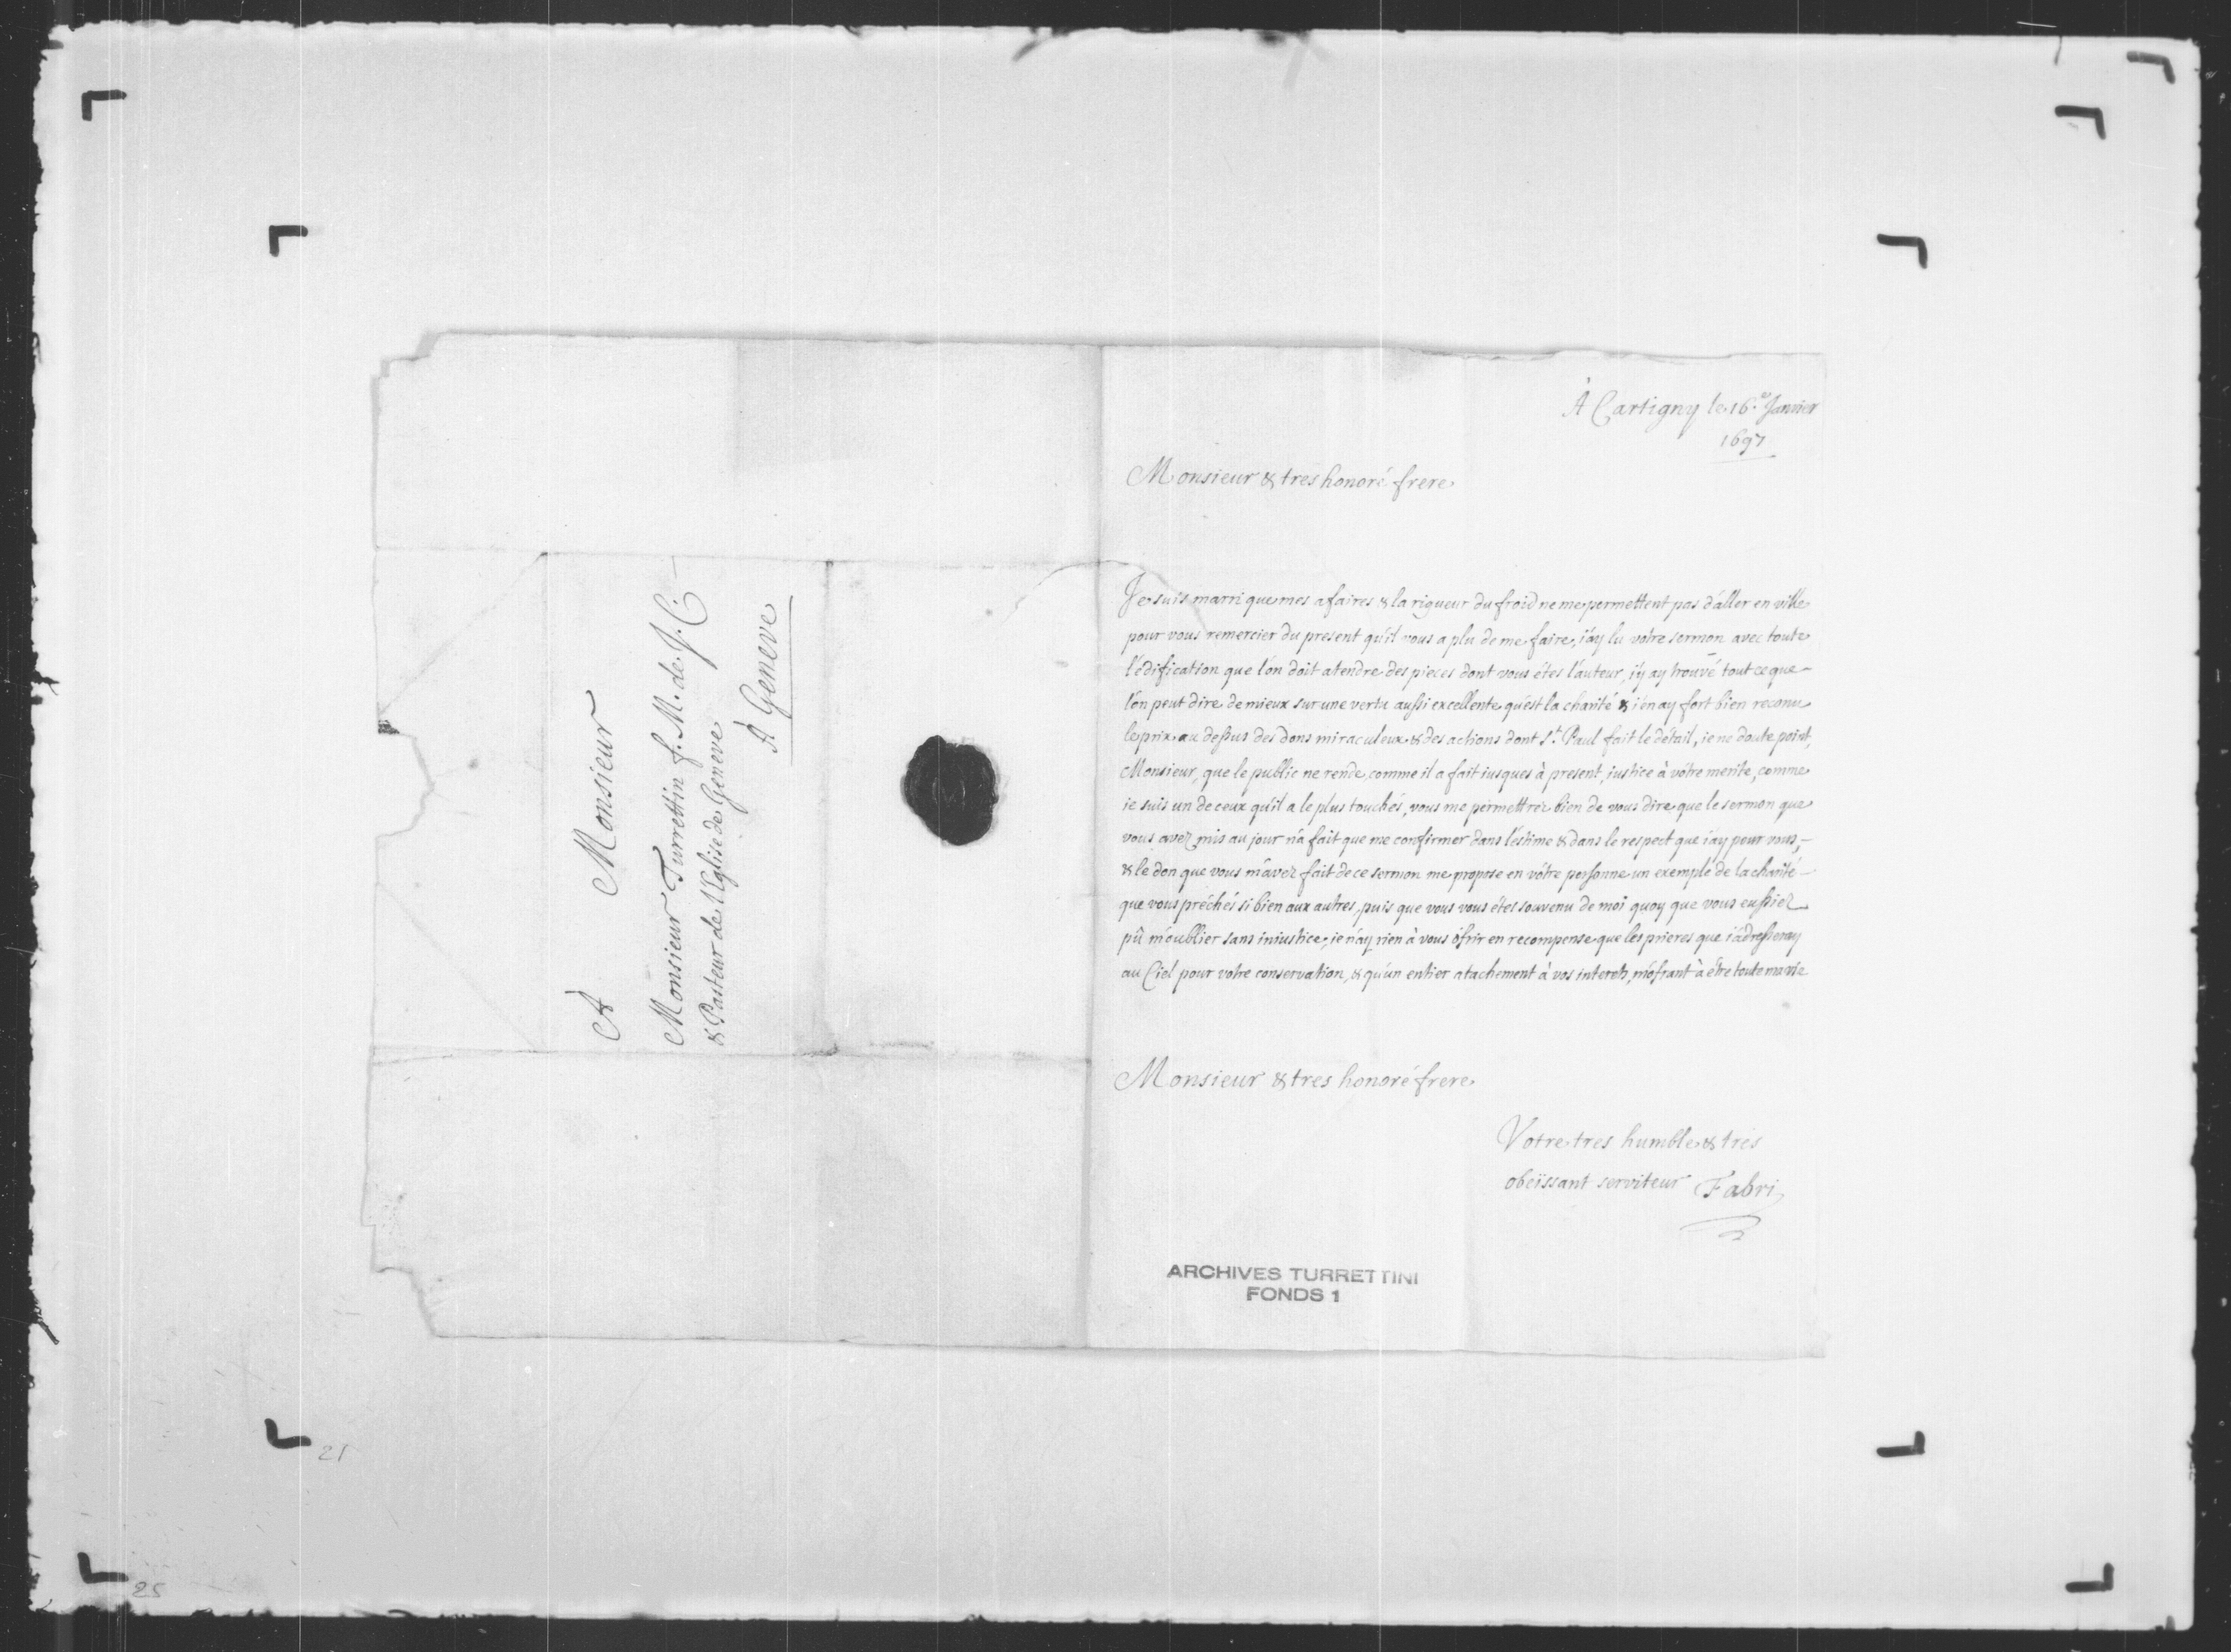 À Monsieur
Monsieur Turrettin f. M. de J. C.
& Pasteur de l'Eglise de Geneve
À Geneve
À Cartigny le 16.e Janvier
1697
Monsieur & tres honoré frere
Je suis marri que mes afaires & la rigueur du froid ne me permettent pas d'aller en ville
pour vous remercier du present qu'il vous a plu de me faire, i'ay lu votre sermon avec toute
l'édification que l'on doit atendre des pieces dont vous étes l'auteur, i'y ay trouvé tout ce que
l'on peut dire de mieux sur une vertu aussi excellente qu'est la charité & i'en ay fort bien reconu
le prix au dessus des dons miraculeux & des actions dont St. Paul fait le détail, ie ne doute point,
Monsieur, que le public ne rende, comme il a fait iusques à present, iustice à vôtre merite, comme
ie suis un de ceux qu'il a le plus touchés, vous me permettrez bien de vous dire que le sermon que
vous avez mis au jour n'a fait que me confirmer dans l'estime & dans le respect que i'ay pour vous,
& le don que vous m'avez fait de ce sermon me propose en vôtre personne un exemple de la charité
que vous préchés si bien aux autres, puis que vous vous étes souvenu de moi quoy que vous eussiez
pû m'oublier sans iniustice, ie n'ay rien à vous ofrir en recompense que les prieres que i'adresseray
au Ciel pour votre conservation, & qu'un entier atachement à vos interets, m'ofrant à étre toute ma vie
Monsieur & tres honoré frere
Votre tres humble & tres
obeïssant serviteur Fabri
ARCHIVES TURRETTINI
FONDS 1
21
25